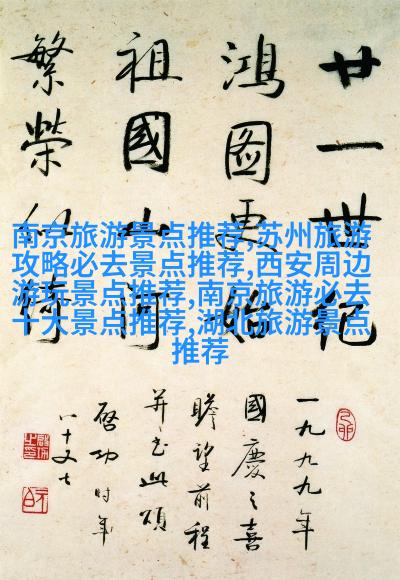 廿一世紀
鴻圖更始
祖國山河
繁榮似綺
南京旅游景点推荐,苏州旅游
攻略必去景点推荐,西安周边
游玩景点推荐,南京旅游必去
十大景点推荐,湖北旅游景点
推荐
一九九九年
國慶之喜
瞻望前程
并书此頌
啓功时年
八十又七